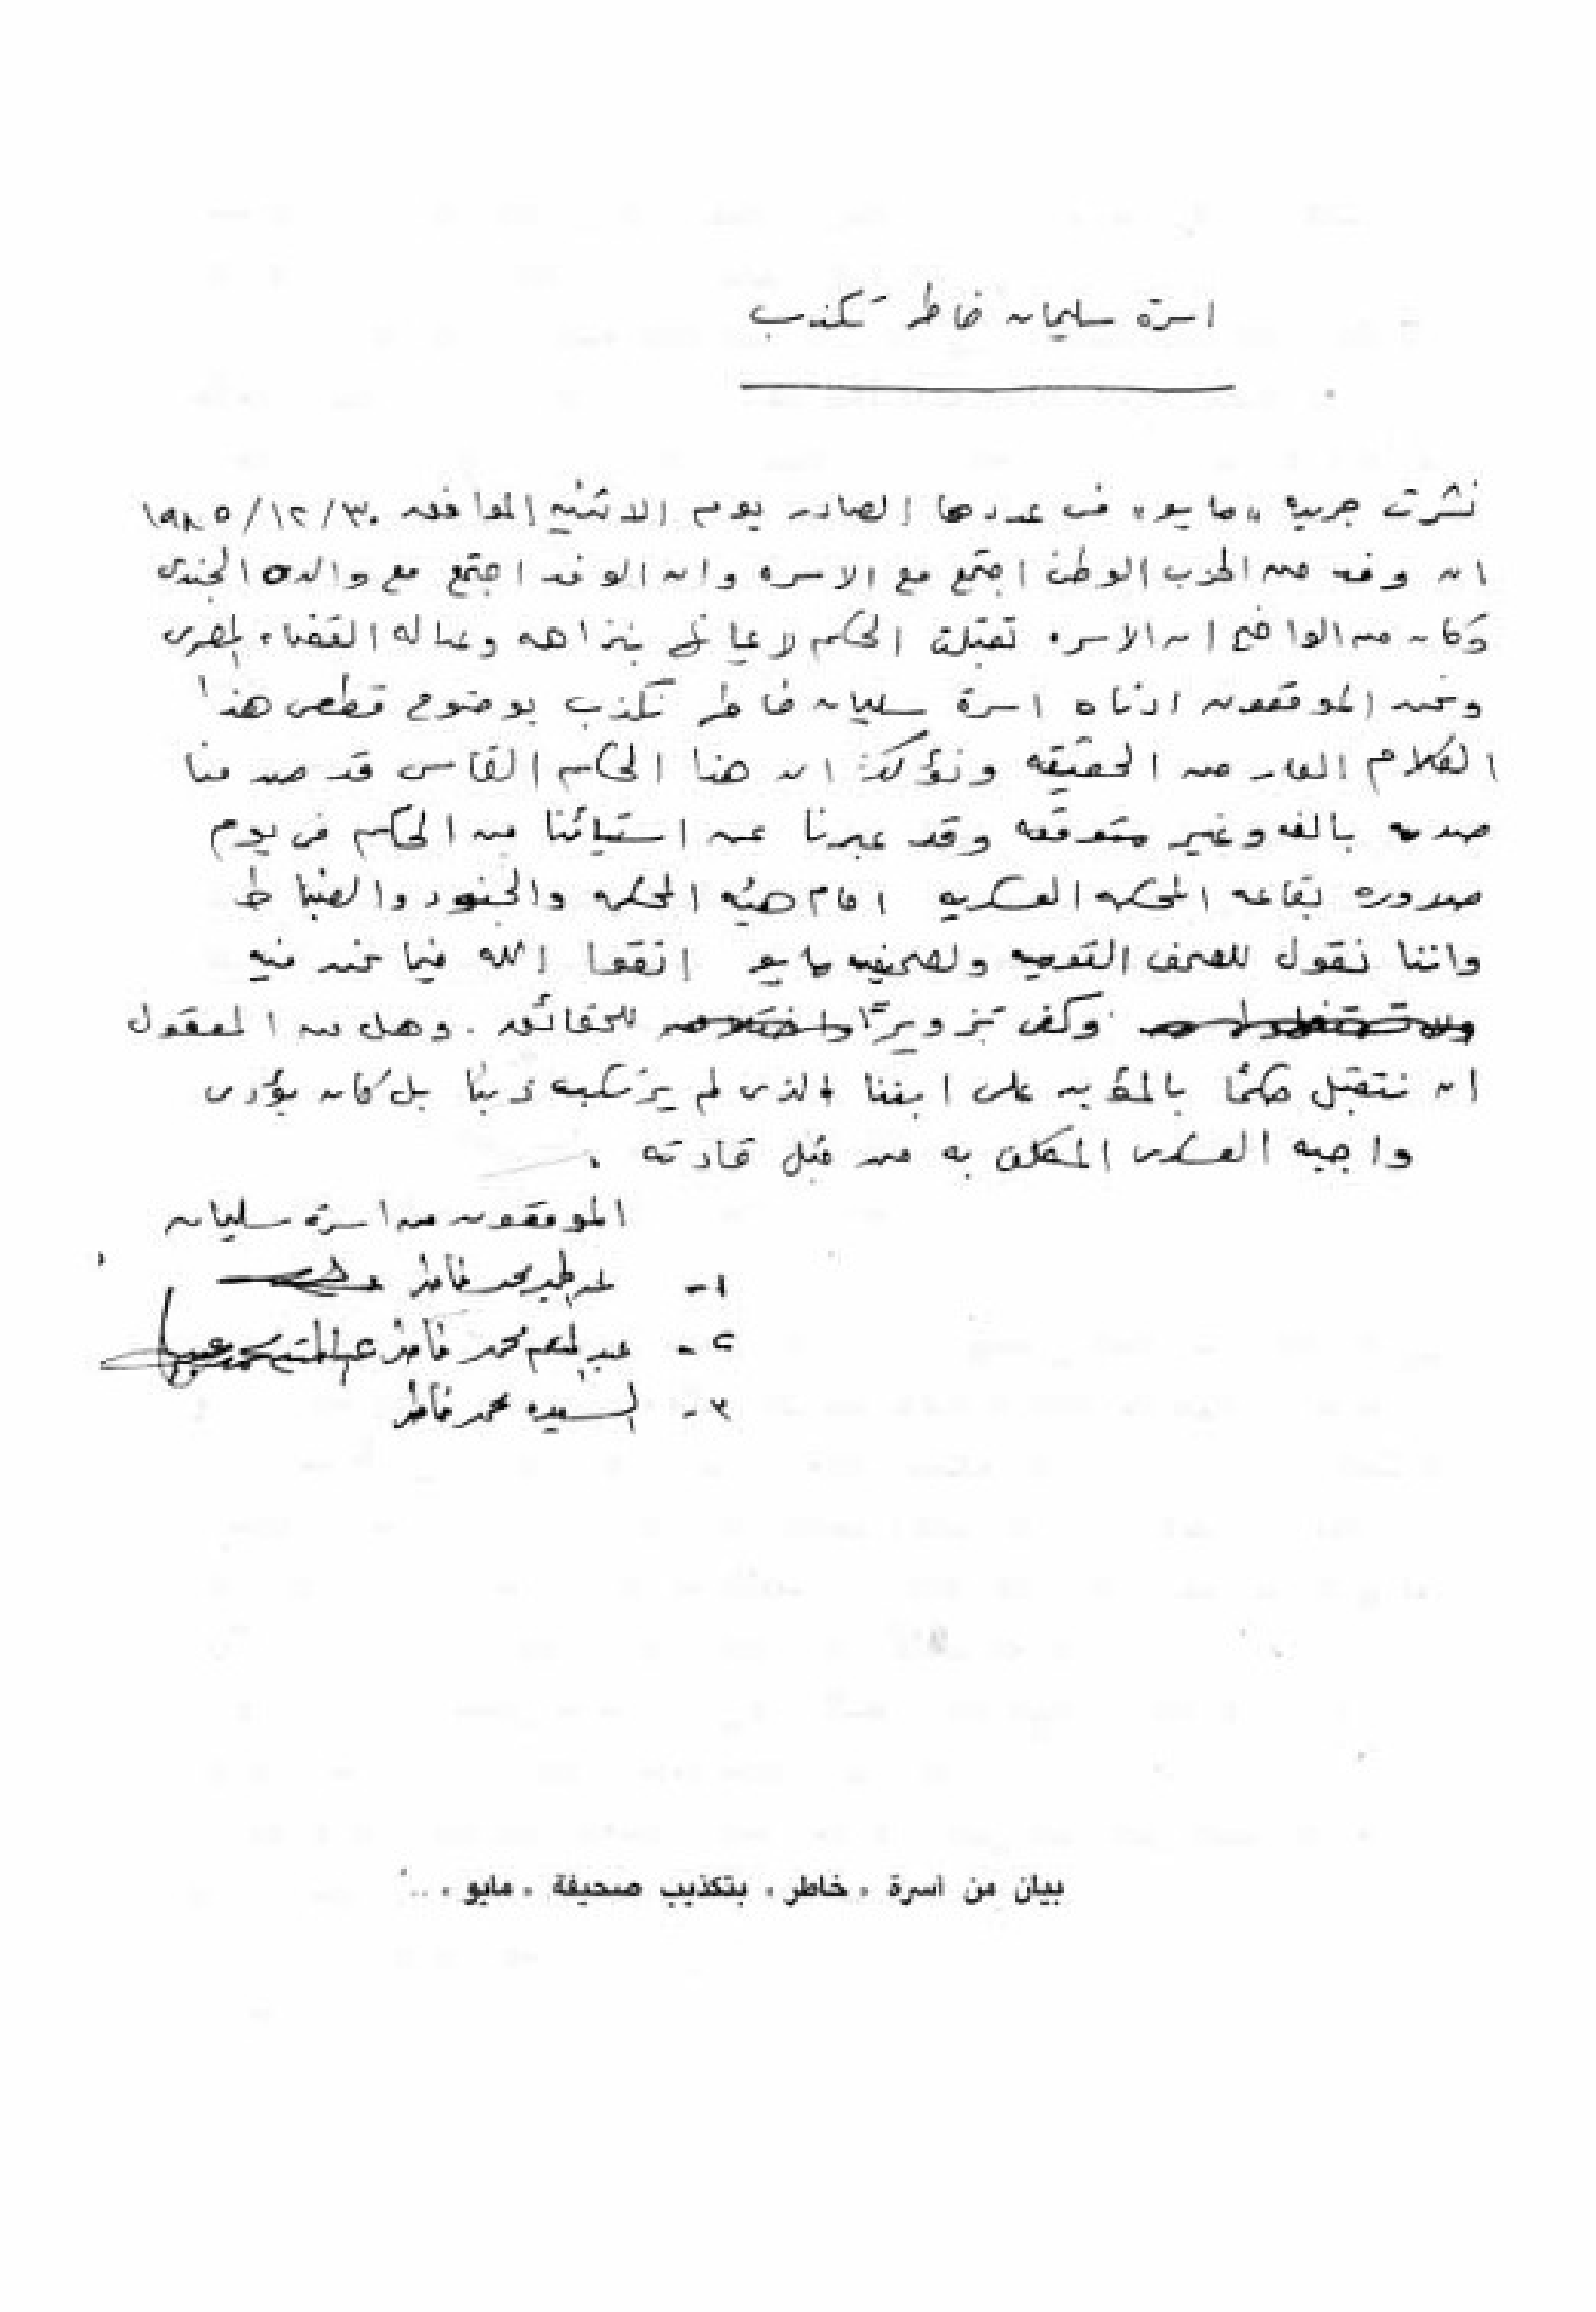 اسرة سليمان خاطر تكذب
نشرت جريده "مايو" فى عددها الصادر يوم الاثنين الموافق ٣٠/١٢/١٩٨٥
ان وفد من الحزب الوطنى اجتمع مع الاسره وان الوفد اجتمع مع والده الجندى
وكان من الواضح ان الاسره تقبلت الحكم لاعيانها بنزاهه وعداله القضاء المصرى
ونحن الموقعون ادناه اسرة سليمان خاطر نكذب بوضوح قطعى هذا
الكلام العار من الحقيقه ونؤكد ان هذا الحكم القاسى قد صدمنا
صدمه بالغه وغير متوقعه وقد عبرنا عن استيائنا من الحكم فى يوم
صدوره بقاعه المحكمه العسكريه امام هيئه المحكمه والجنود والضباط
واننا نقول للصحف القوميه ولصحيفه مايو اتقوا الله فيما نحن فيه
وكفى تزويرًا للحقائق . وهل من المعقول
ان نتقبل حكمًا بالمؤبد على ابننا الذى لم يرتكب ذنبًا بل كان يؤدى
واجبه العسكرى المكلف به من قبل قادته .
الموقعون من اسرة سليمان
١- عبد الحميد محمد خاطر
٢- عبد المنعم محمد خاطر عبد المنعم محمد
٣- السيده محمد خاطر
بيان من أسرة « خاطر » بتكذيب صحيفة « مايو » ..